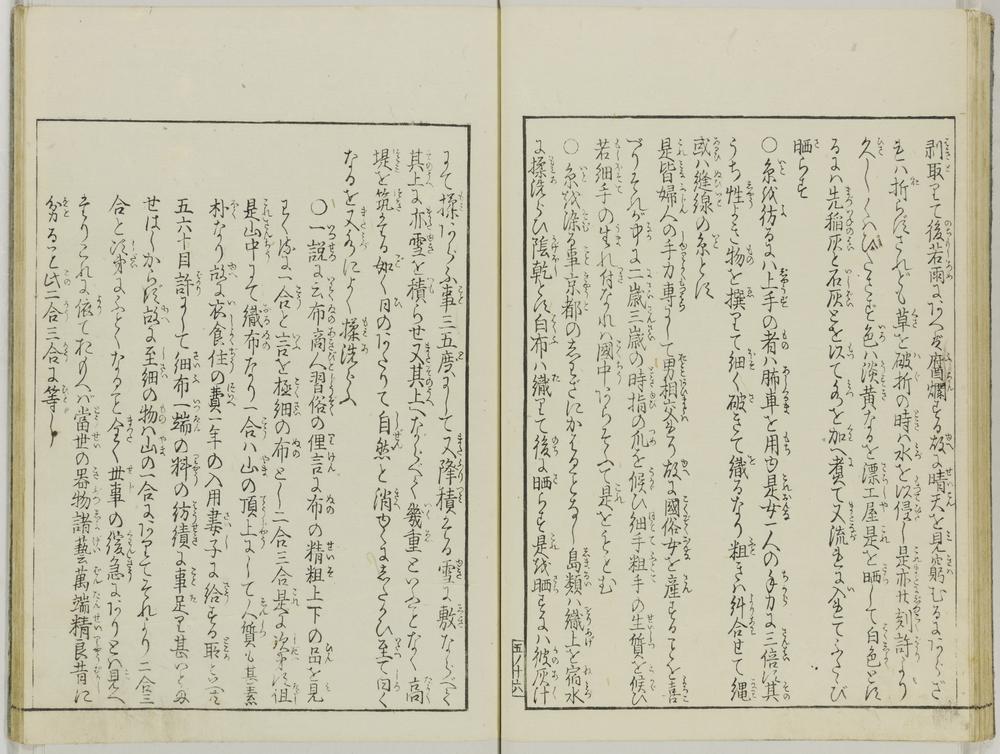 剥取りて後若雨にあへバ腐爛する故に晴天を見窮むるにあらざ
れハ折らすされども草を破折の時ハ水を以浸し是亦半刻許より
久しくハひたさず色ハ淡黄なるを漂工屋是を晒して白色とす
るにハ先稲灰と石灰とを以て水を加へ煮て又流れに入れてふたゝび
晒らす
〇糸を紡るにハ上手の者ハ肺車を用ゆ是女一人の手力に三倍す其
うち性よき物を撰りて細く破きて織るなり粗きハ糾合せて縄
或ハ縫線の糸とす
是皆婦人の手力専らにて男相交る故に國俗女を産することを喜
べりそれが中に二歳三歳の時指の爪を候ひ細手粗手の生質を候ひ
若細手の生れ付なれハ國中あらそふて是をもとむ
〇糸を染る事京都の
島類ハ織上を宿水
に揉洗らひ陰乾とす白布ハ織りて後に晒らす是を晒すにハ彼灰汁
五ノ十六
にて揉あらふ事三五度にして又降積もる雪に敷ならべて
其上に亦雪を積らせ又其上へならべて幾重といふことなく高
堤を筑たる如く日のあたりて自然と消ゆるにしたがひ至て白く
なるを又水によく揉洗らふ
〇一説に云布商人習俗の俚言に布の精粗上下の品を見
わくるに一合と言を極細の布とし二合三合是に次第す徂
是山中にて織布なり一合ハ山の頂上にして人質も甚素
朴なり故に衣食住の費一年の入用妻子に給する取
五六十目許にして細布一端の料の紡績に事足り甚いとな
せはしからず故に至細の物ハ山の一合にありてそれより二合三
合と次第にふとくなるハ全く世事の緩急にありとハ見へ
たりこれに依ておもへハ當世の器物諸藝萬端精良昔に
劣るハ此二合三合に等し